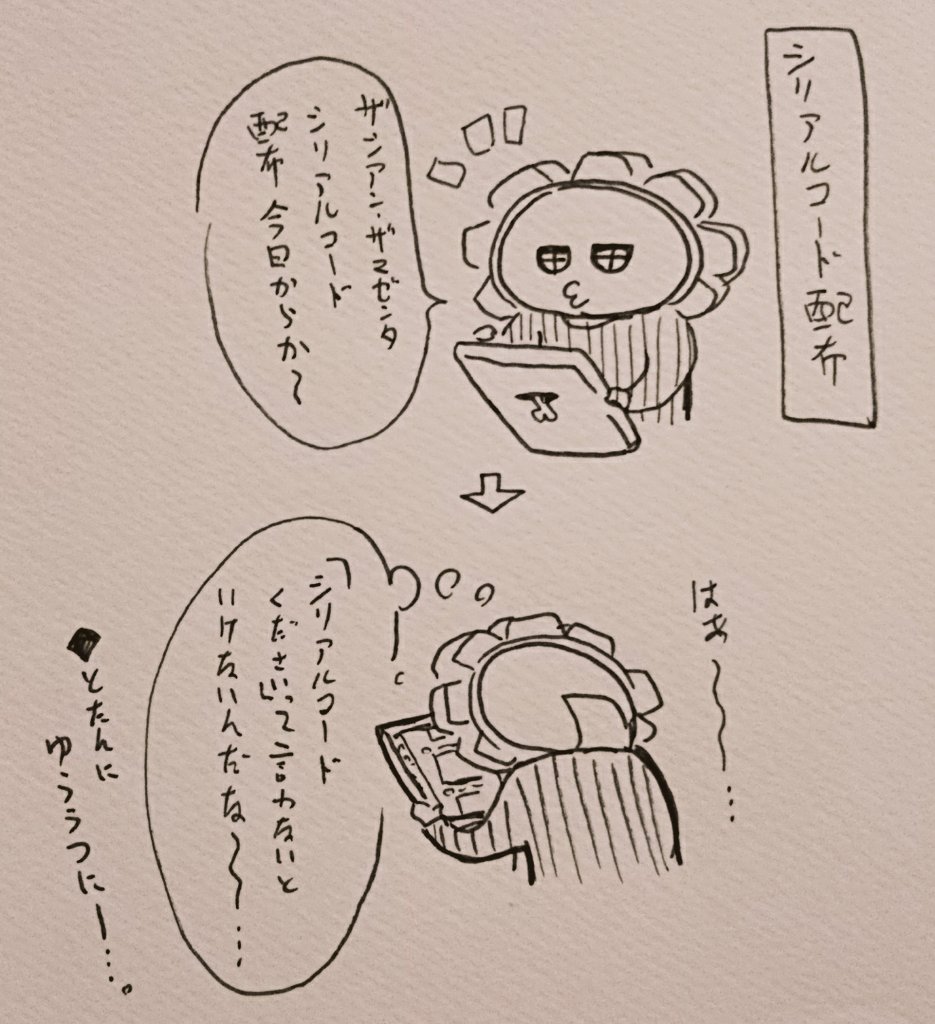 シリアルコード配布
ザシアン・ザマゼンタ
シリアルコード
配布今日からか〜
はぁ〜〜…
「シリアルコード
ください」って言わないと
いけないんだな〜〜…
◆とたんに
ゆううつにー…。